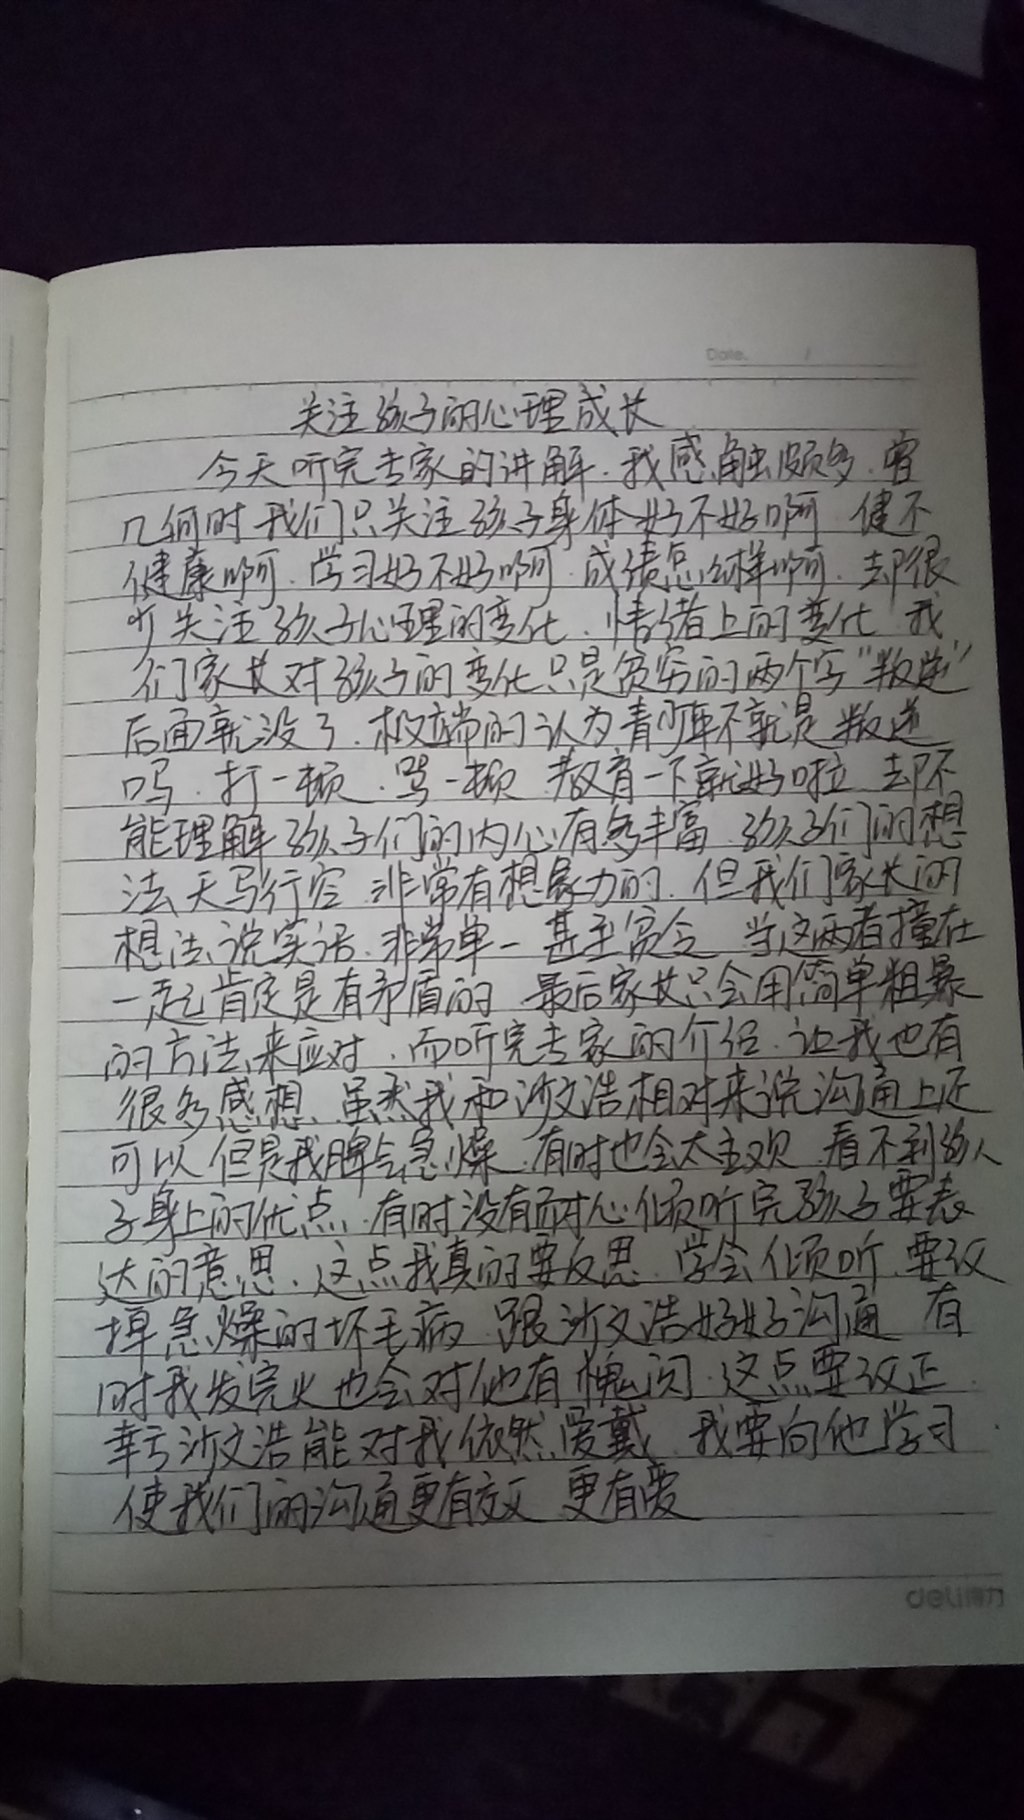 Date. /
关注孩子的心理成长
今天听完专家的讲解.我感触颇多.曾
几何时我们只关注孩子身体好不好啊 健不
健康啊.学习好不好啊.成绩怎么样啊.却很
少关注孩子心理的变化.情绪上的变化 我
们家长对孩子的变化只是贫穷的两个字"叛逆"
后面就没了.极端的认为青少年不就是叛逆
吗.打一顿.骂一顿 教育一下就好啦 却不
能理解孩子们的内心有多丰富.孩子们的想
法天马行空 非常有想象力的.但我们家长的
想法说实话.非常单一 甚至 当这两者撞在
一起肯定是有矛盾的 最后家长只会用简单粗暴
的方法来应对.而听完专家的介绍.让我也有
很多感想.虽然我和沙文浩相对来说沟通上还
可以但是我脾气急燥.有时也会太主观 看不到孩
子身上的优点.有时没有耐心倾听完孩子要表
达的意思.这点我真的要反思.学会倾听.要改
掉急燥的坏毛病 跟沙文浩好好沟通 有
时我发完火也会对他有愧疚.这点要改正.
幸亏沙文浩能对我依然爱戴 我要向他学习
使我们的沟通更有效 更有爱
deli得力